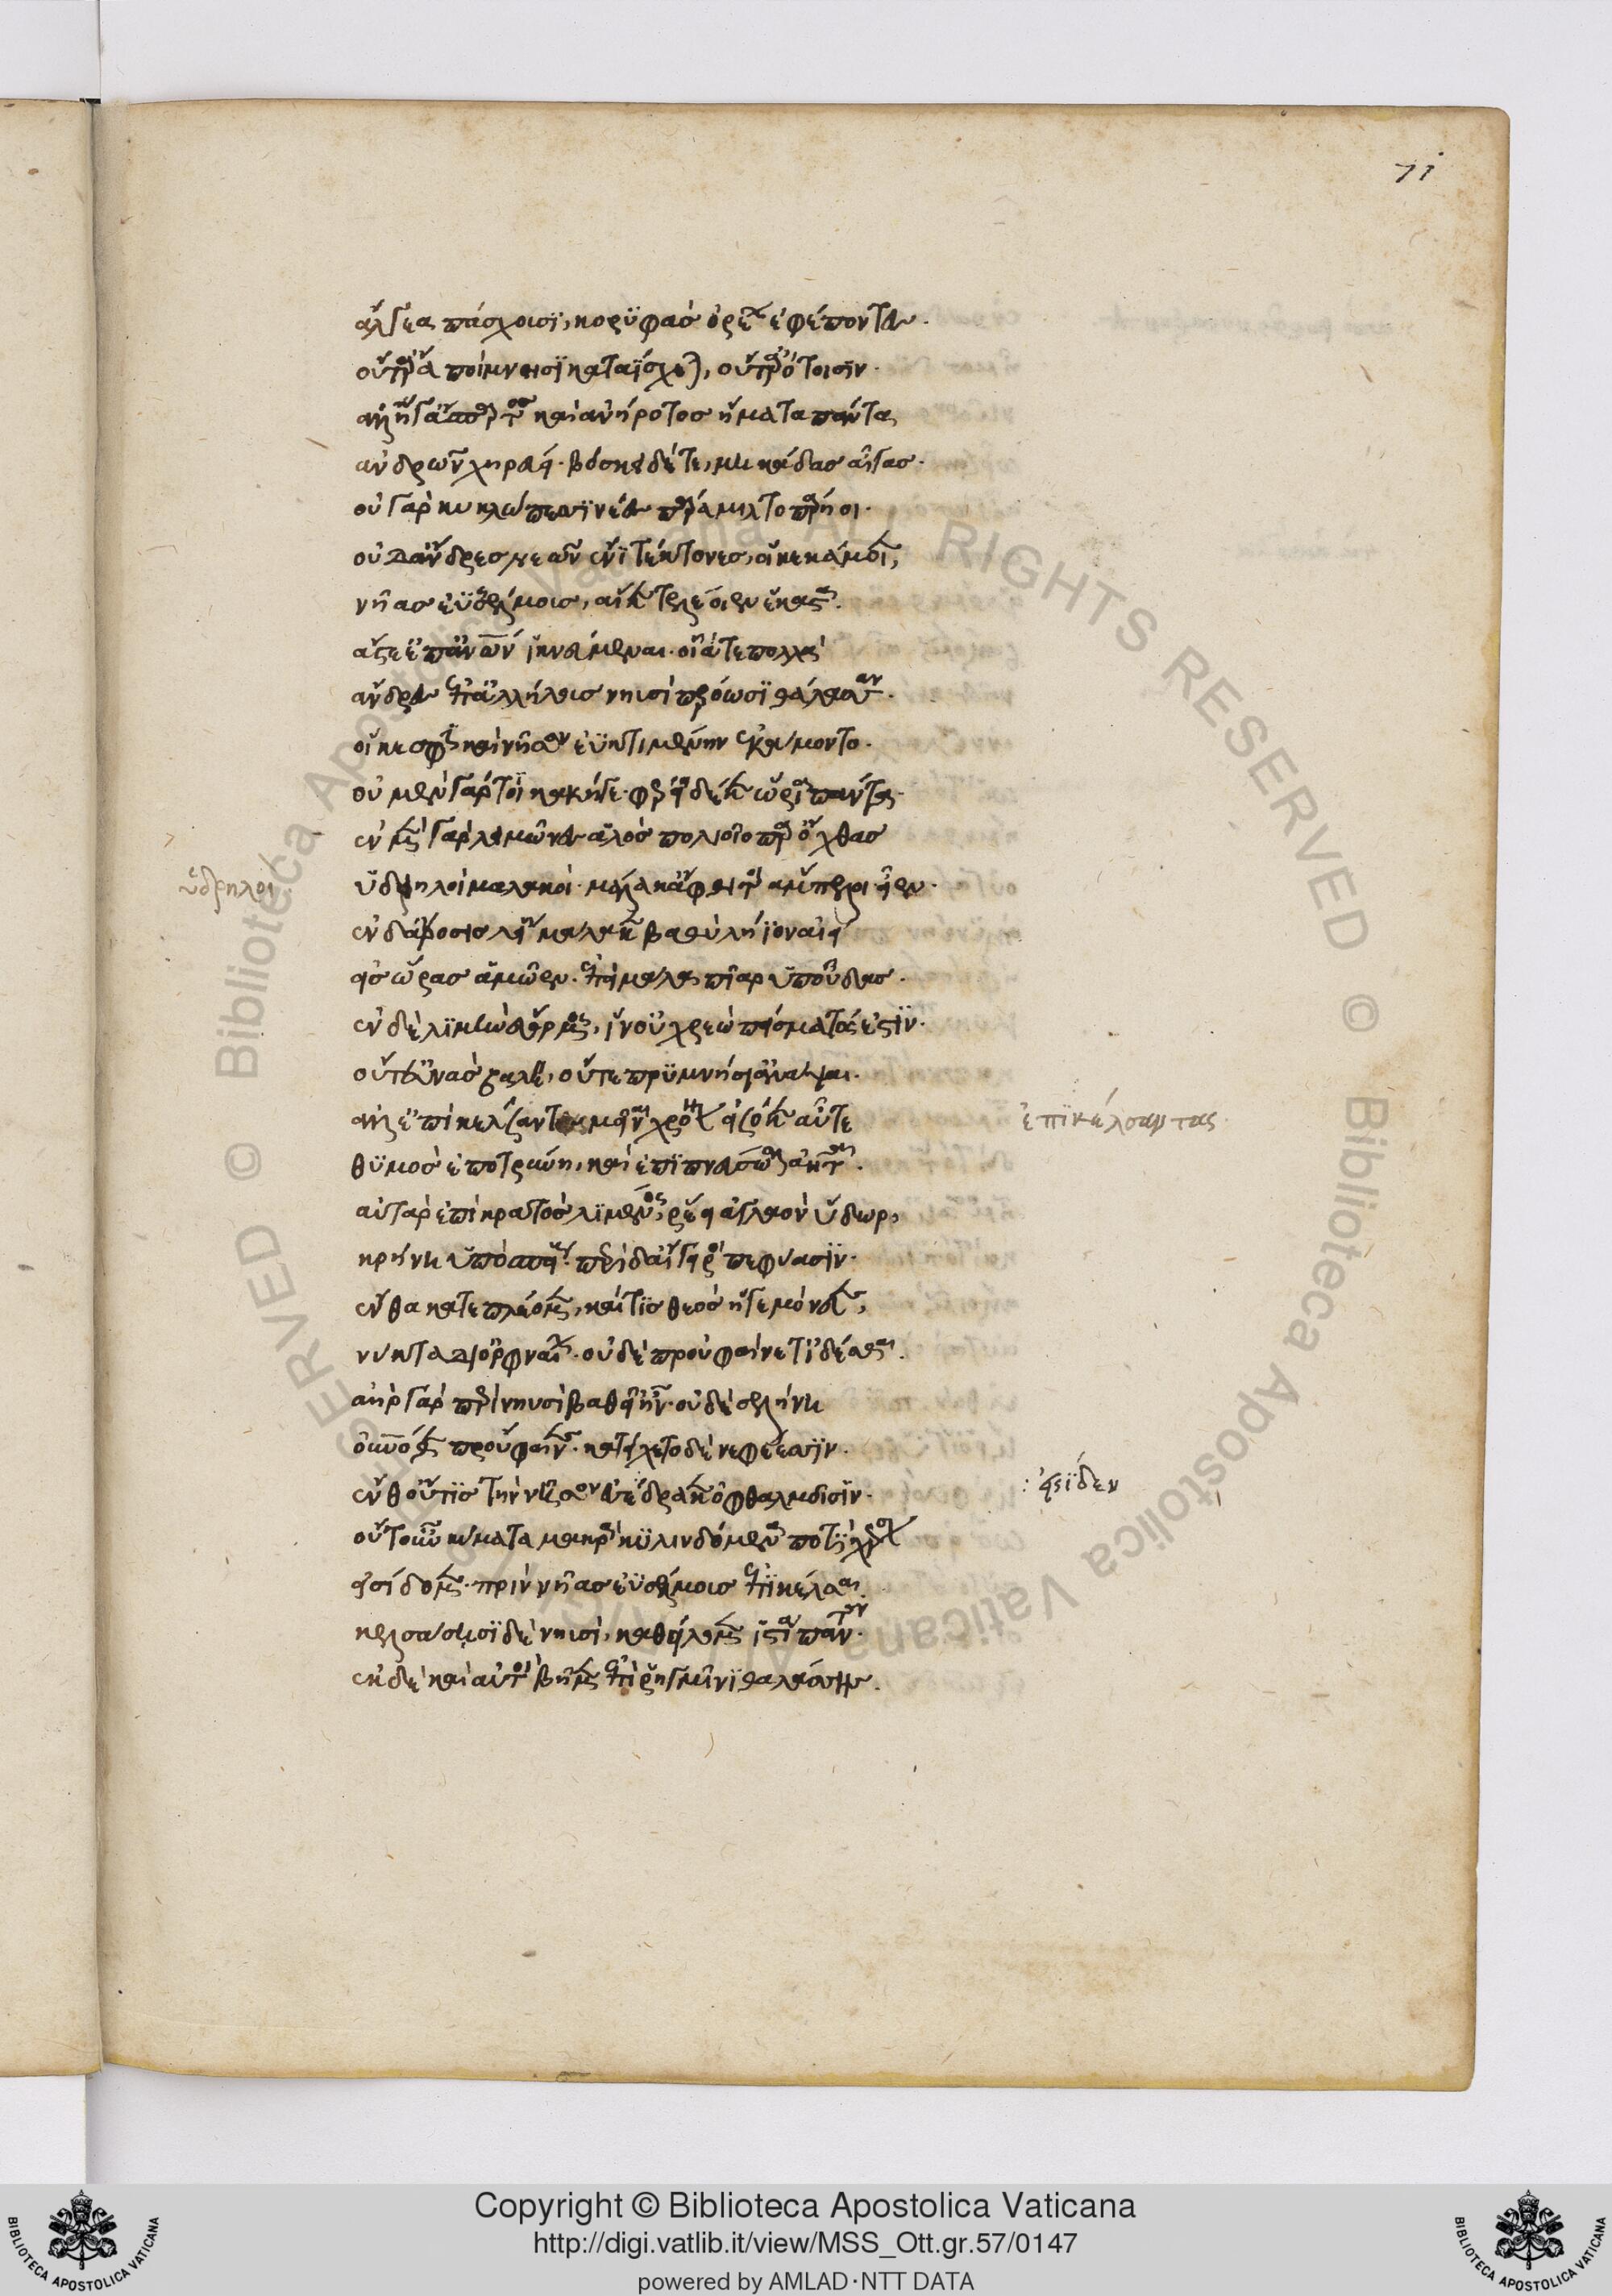 71
ἄλγεα πάσχουσϊ, κορϋφὰσ ὀρέων ἐφέποντες.
οὔτ' ἄρα ποίμνῃσϊ καταΐσχεται, οὔτ' ἀρότοισϊν.
ἀλλ' ἥγ' ἄσπαρτοσ καὶ ἀνήροτοσ ἤματα πάντα
ἀνδρῶν χηρεύει. βόσκει δέ τε μηκάδασ αἶγασ.
οὐ γὰρ κυκλώπεσσϊ νέεσ πάρα μιλτοπάρηοι.
οὐδ' ἄνδρεσ νεῶν ἔνϊ τέκτονεσ, οἵ κε κάμοιεν
νῆασ ἐϋσσέλμουσ, αἵ κεν τελέοιεν ἕκαστα.
ἄστε' ἐπ' ἀνθρώπων ἱκνεύμεναι. οἷά τε πολλὰ
ἄνδρεσ ἐπ' ἀλλήλουσ νηυσὶ περόωσϊ θάλασσαν.
οἵ κε σφϊν καὶ νῆσον ἐϋκτιμένην ἐκάμοντο.
οὐ μὲν γάρ τϊ κακήγε. φέροι δέ κεν ὥρια πάντα.
ἐν μὲν γὰρ λειμῶνεσ ἁλὸσ πολιοῖο παρ' ὄχθασ
ὕδρηλοι
ὑδρηλοὶ μαλακοί. μάλα κ' ἄφθιτοι ἄμπελοι εἶεν.
ἐν δ' ἄροσισ λείη μάλα κεν βαθὺ λήϊον αἰεὶ
εἰσ ὥρασ ἀμῶεν. ἐπεὶ μάλα πῖαρ ὑπ' οὖδασ.
ἐν δὲ λϊμὴν εὔορμοσ, ἵν' οὐ χρεὼ πείσματόσ ἐστϊν.
οὔτ' εὐνὰσ βαλέειν, οὔτε πρϋμνήσι' ἀνάψαι.
ἀλλ' ἐπικέλσαντασ μεῖναι χρόνον εἰσόκεν αὖτε
ἐπϊκέλσαντας
θϋμὸσ ἐποτρύνῃ, καὶ ἐπϊπνεύσωσιν ἀῆται.
αὐτὰρ ἐπὶ κρατὸσ λϊμένοσ ῥέει ἀγλαὸν ὕδωρ,
κρήνη ὑπὸ σπείουσ. περὶ δ' αἴγειροι πεφύασϊν.
ἔνθα κατεπλέομεν, καί τϊσ θεὸσ ἡγεμόνευεν,
νύκτα δι' ὀρφναίην. οὐδὲ προὐφαίνετ' ἰδέσθαι.
ἀὴρ γὰρ περὶ νηυσὶ βαθεῖ' ἦν. οὐδὲ σελήνη
οὐρανόθεν προὔφαινεν. κατείχετο δὲ νεφέεσσϊν.
ἔνθ' οὔτϊσ τὴν νῆσον ἐσέδρακεν ὀφθαλμοῖσϊν.
ἐσεϊδεν
οὔτ' οὖν κύματα μακρὰ κϋλινδόμενα ποτὶ χέρσον
εἰσίδομεν. πρὶν νῆασ ἐϋσσέλμουσ ἐπϊκέλσαι.
κελσάσῃσϊ δὲ νηυσὶ, καθείλομεν ἱστία πάντα.
ἐκ δὲ καὶ αὐτοὶ βῆμεν ἐπὶ ῥηγμῖνϊ θαλάσσησ.
Copyright © Biblioteca Apostolica Vaticana
http://digi.vatlib.it/view/MSS_Ott.gr.57/0147
powered by AMLAD·NTT DATA
BIBLIOTECA APOSTOLICA VATICANA
BIBLIOTECA APOSTOLICA VATICANA